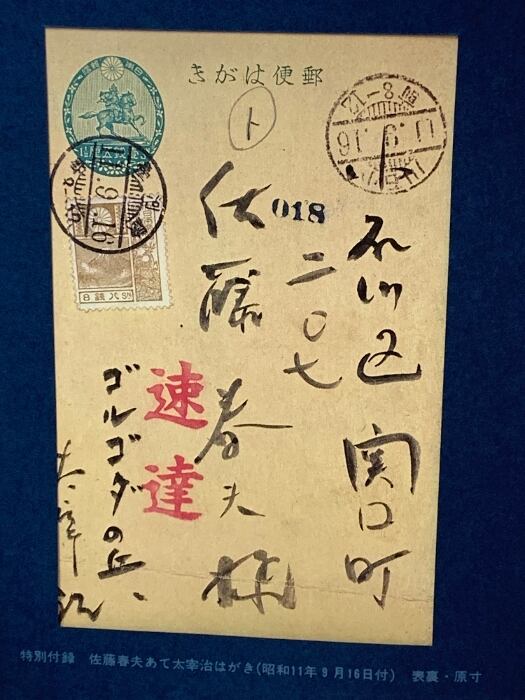 郵便はがき
ト
11.9.16
018
石川区関口町
二〇七
佐藤春夫様
速達
ゴルゴダの丘、
太宰治
特別付録 佐藤春夫あて太宰治はがき(昭和11年9月16日付) 表裏・原寸